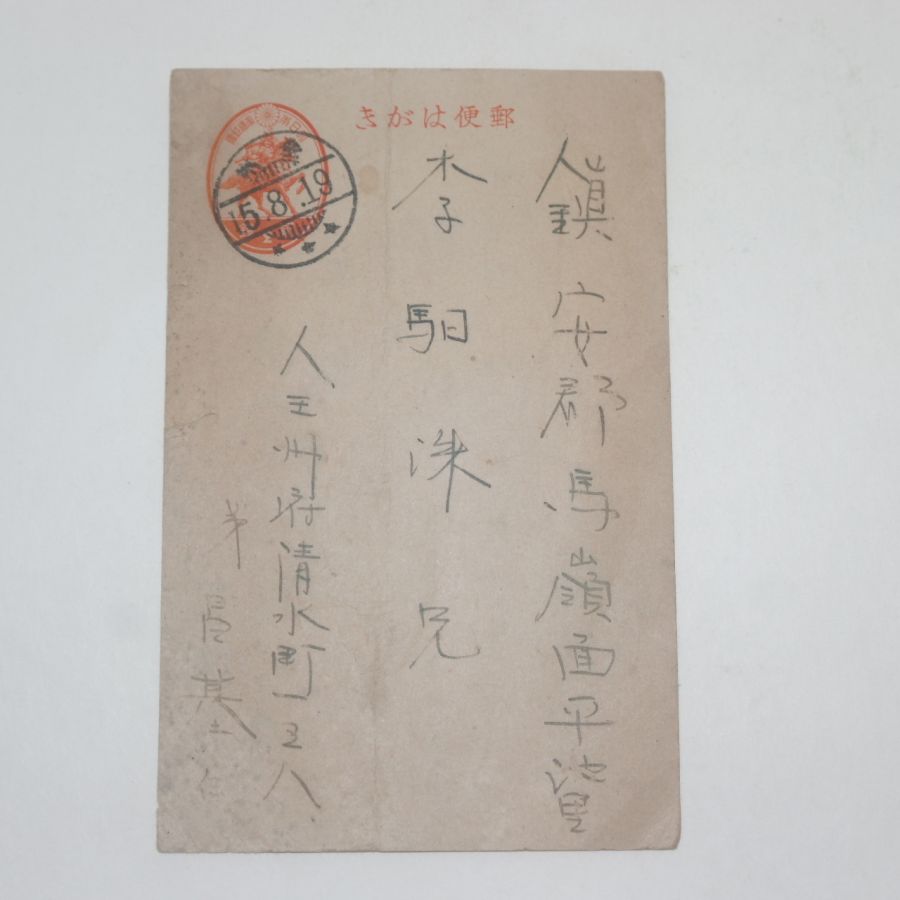 郵便はがき
15.8.19
鎭安郡馬嶺面平池里
李馹洙兄
全州府清水町三八
弟 昌基